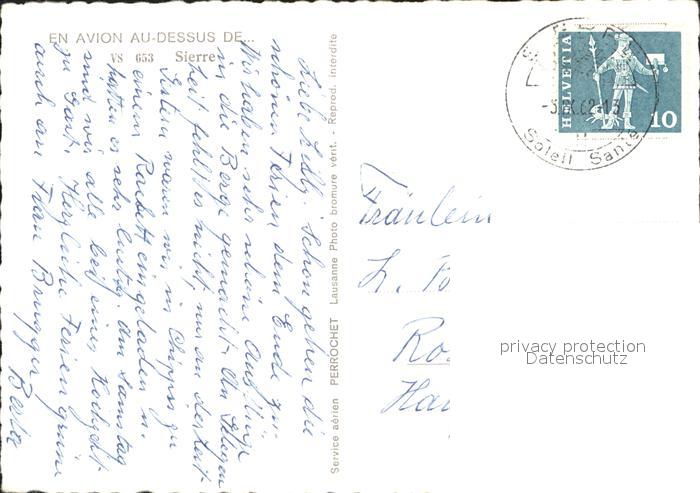 EN AVION AU-DESSUS DE...
VS 653 Sierre
Liebe Schon gehen die
schönen Ferien dem Ende zu.
Wir haben sehr schöne Ausflüge
in die Berge gemacht. An
fehlt es nicht, nur an der Zeit.
Gestern waren wir in Chippis zu
einem eingeladen u.
hatten es sehr lustig. Am Samstag
sind wir alle bei einer Hochzeit
zu Gast. Herzliche Feriengrüsse
auch an Frau Brugger Berta
Service aérien PERROCHET Lausanne Photo bromure vérit. - Reprod. interdite
HELVETIA
10
Soleil Santé
Fräulein
L. B
Ro
Hau
privacy protection
Datenschutz